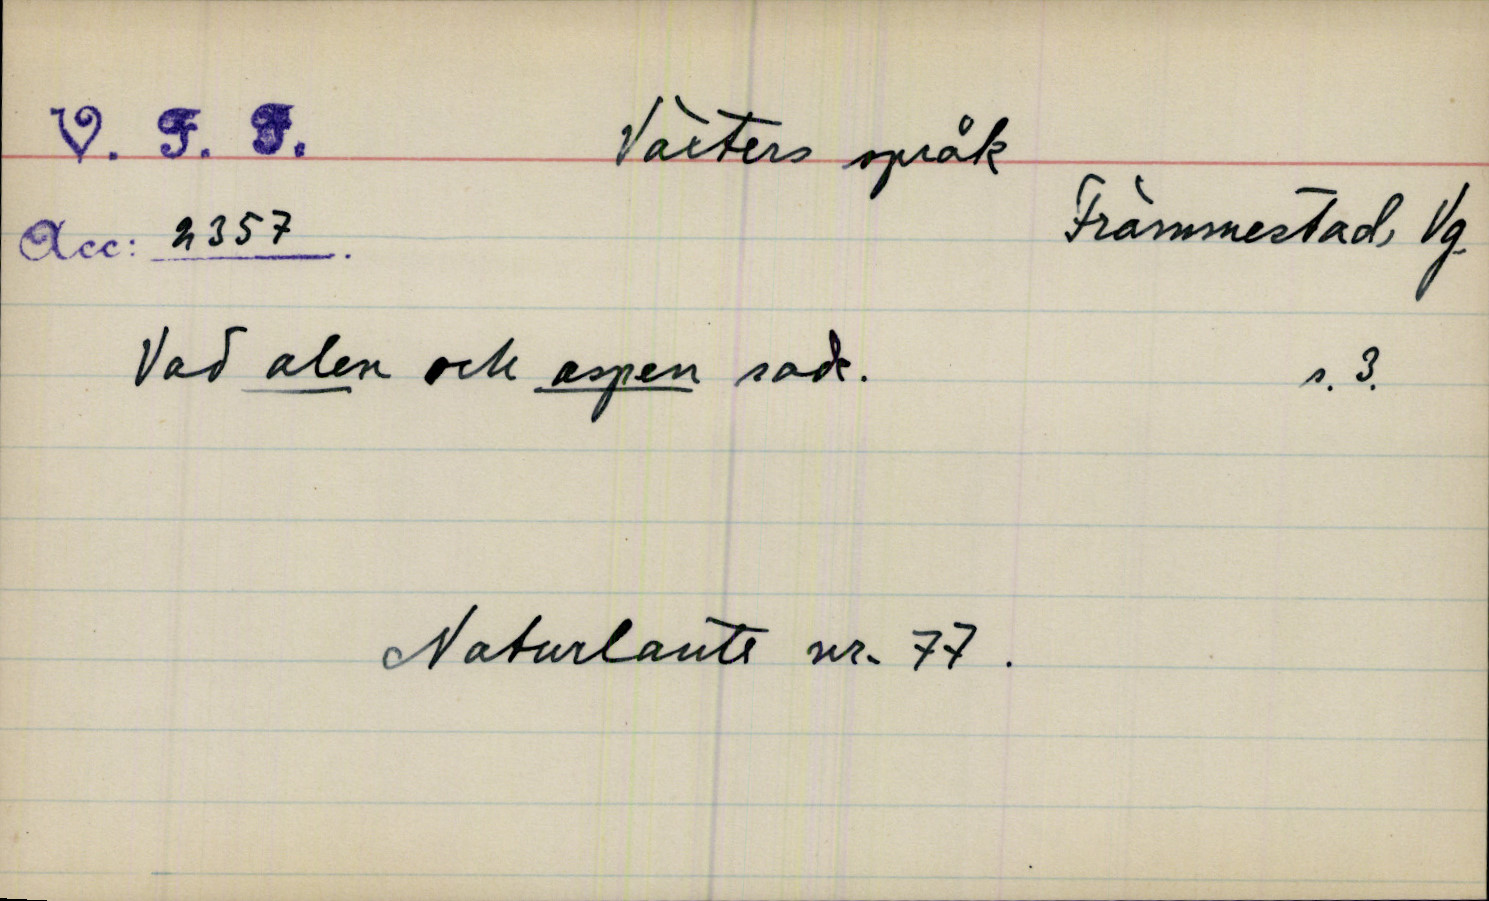 V. F. F. Växters språk
Acc: 2357. Främmestad, Vg.
Vad alen och aspen sade. s. 3.
Naturlaute nr. 77.